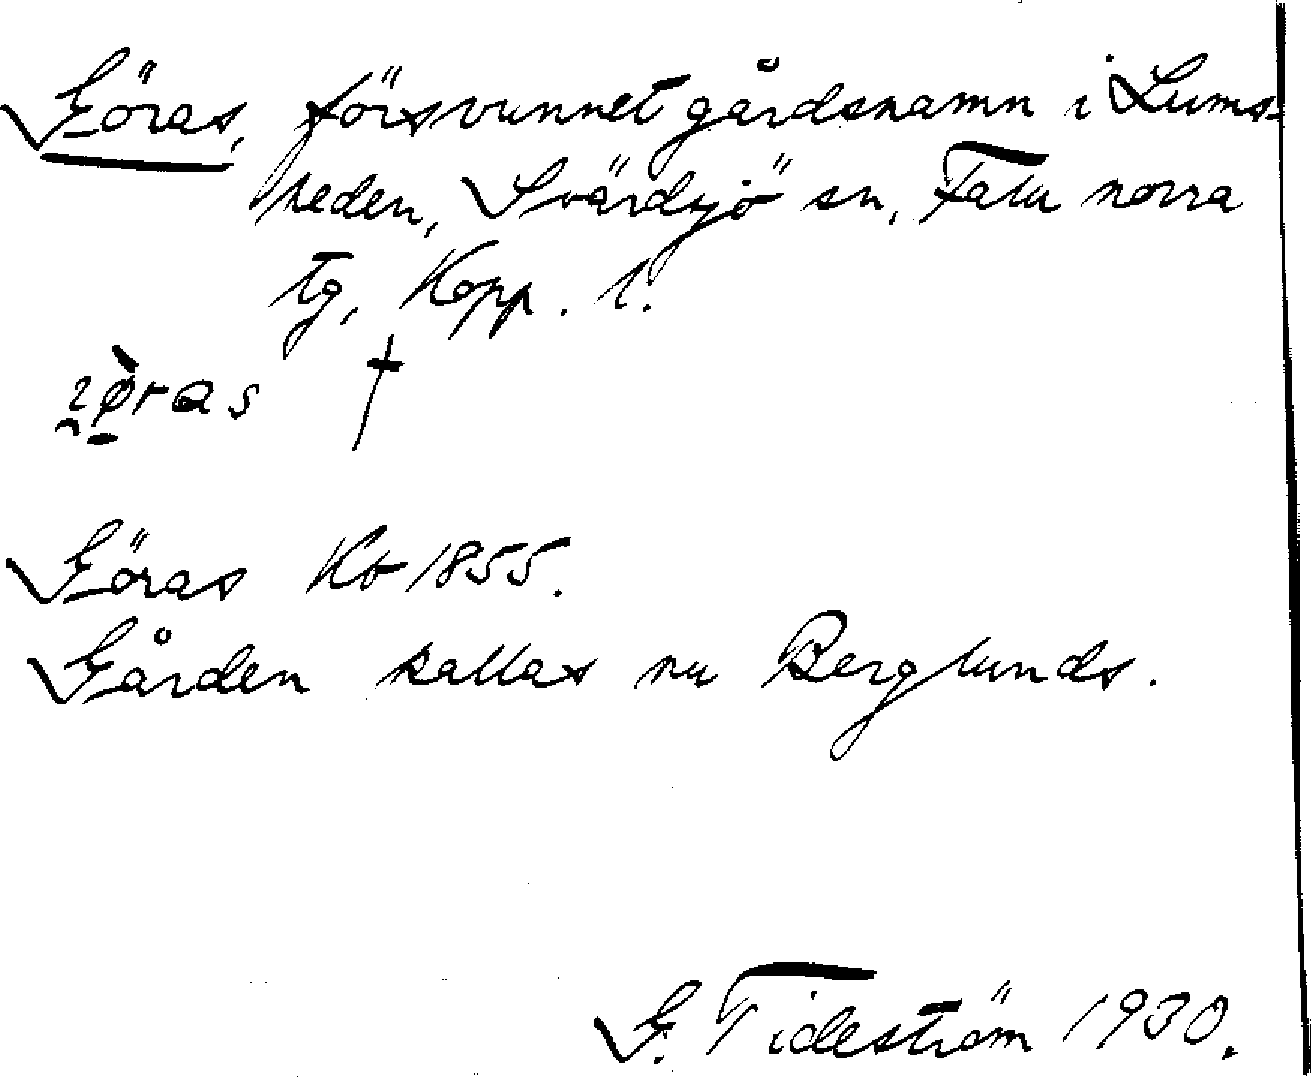 Göras, försvunnet gårdsnamn i Lums-
heden, Svärdsjö sn, Falu norra
tg, Kopp. l.
†
Göras Kb 1855.
Gården kallas nu Berglunds.
G. Tideström 1930.